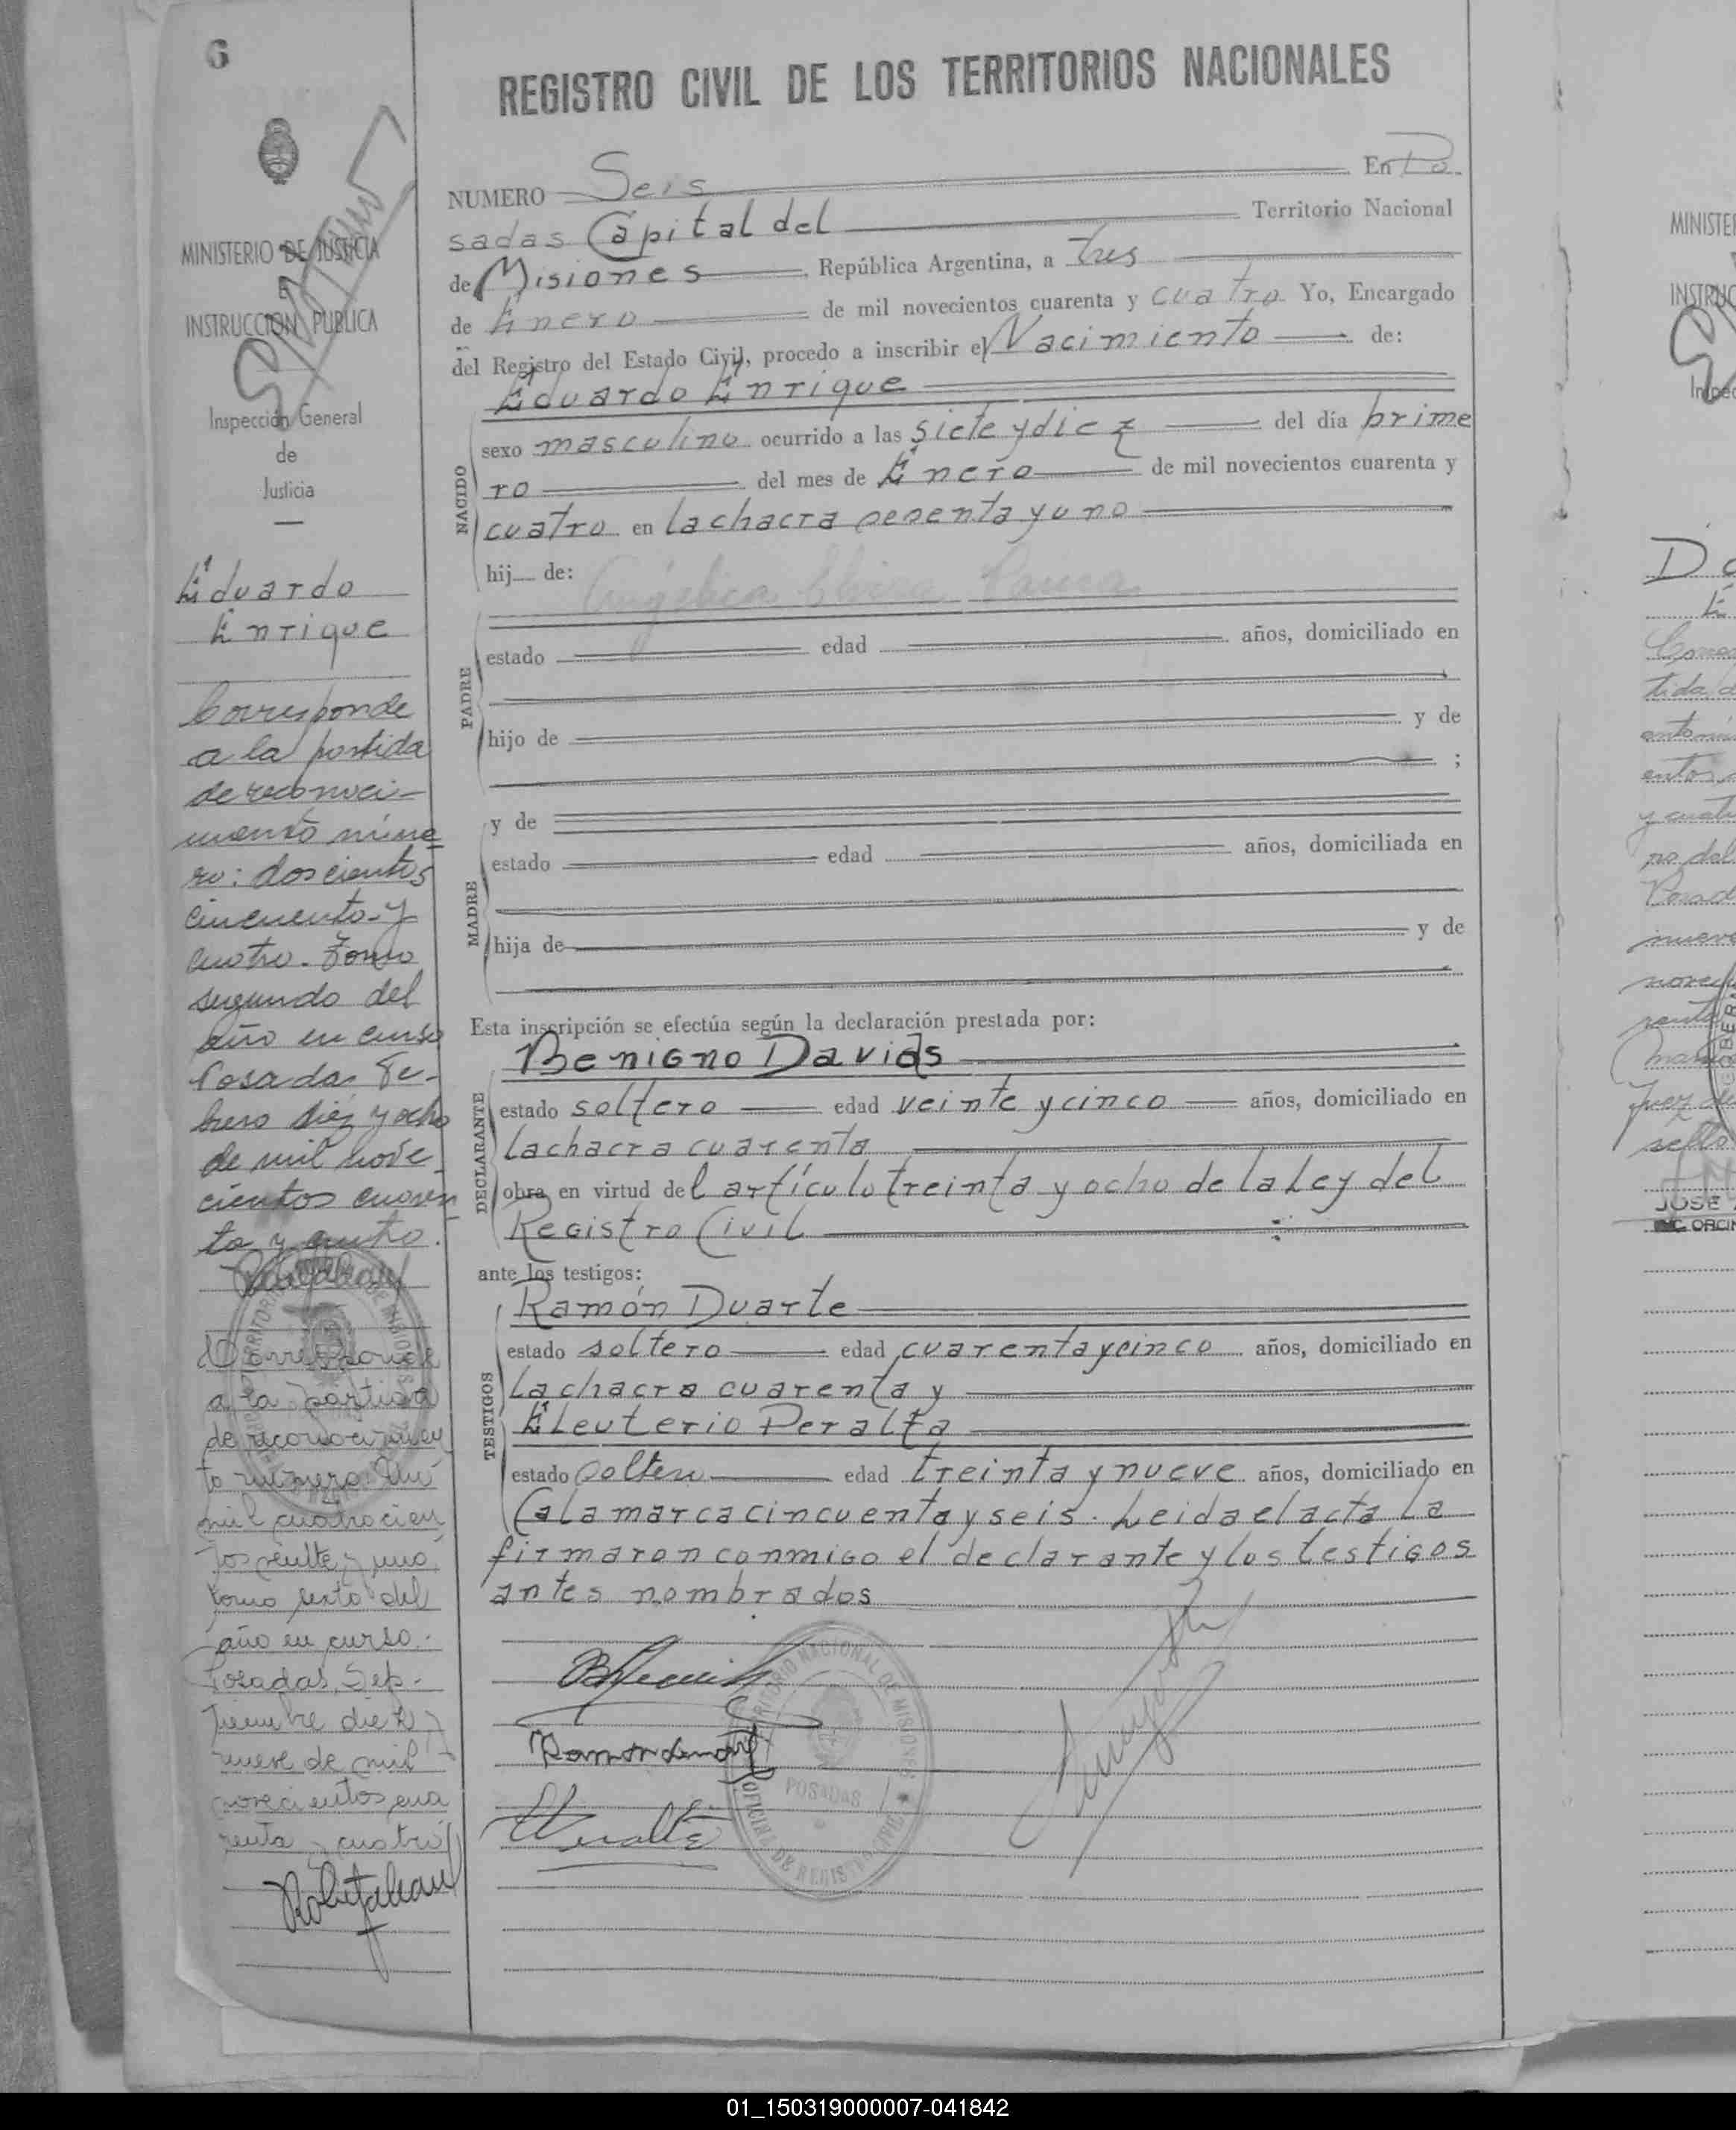 6
REGISTRO CIVIL DE LOS TERRITORIOS NACIONALES
NUMERO Seis En Po
sadas Capital del Territorio Nacional
de Misiones, República Argentina, a tres
de Enero de mil novecientos cuarenta y cuatro Yo, Encargado
del Registro del Estado Civil, procedo a inscribir el Nacimiento de:
Eduardo Enrique
NACIDO
sexo masculino ocurrido a las siete y diez del día prime
ro del mes de Enero de mil novecientos cuarenta y
cuatro en la chacra sesenta y uno
hij de:
Angélica Elvira
PADRE
estado edad años, domiciliado en
hijo de y de
;
y de
MADRE
estado edad años, domiciliada en
hija de y de
Esta inscripción se efectúa según la declaración prestada por:
Benigno Davids
DECLARANTE
estado soltero edad veinte y cinco años, domiciliado en
la chacra cuarenta
obra en virtud del artículo treinta y ocho de la Ley del
Registro Civil
ante los testigos:
Ramón Duarte
TESTIGOS
estado soltero edad cuarenta y cinco años, domiciliado en
la chacra cuarenta y
Eleuterio Peralta
estado soltero edad treinta y nueve años, domiciliado en
Catamarca cincuenta y seis. Leida el acta la
firmaron conmigo el declarante y los testigos
antes nombrados
TERRITORIO NACIONAL DE MISIONES
POSADAS
OFICINA DE REGISTRO CIVIL
MINISTERIO DE JUSTICIA
E
INSTRUCCION PUBLICA
Inspección General
de
Justicia
Eduardo
Enrique
Corresponde
a la partida
de reconoci-
miento núme
ro: doscientos
cincuenta y
cuatro. Tomo
segundo del
año en curso
Posadas Fe-
brero diez y ocho
de mil nove-
cientos cuaren
ta y cuatro.
Corresponde
a la partida
de reconocimien
to número: Un
mil cuatrocien
tos veinte y uno
tomo sexto del
año en curso.-
Posadas, Sep-
tiembre diez y
nueve de mil
novecientos cua
renta y cuatro
MINISTE
INSTRUC
Inspec
tida d
y cuat
no del
Posad
nueve
sello
JOSE
01_150319000007-041842